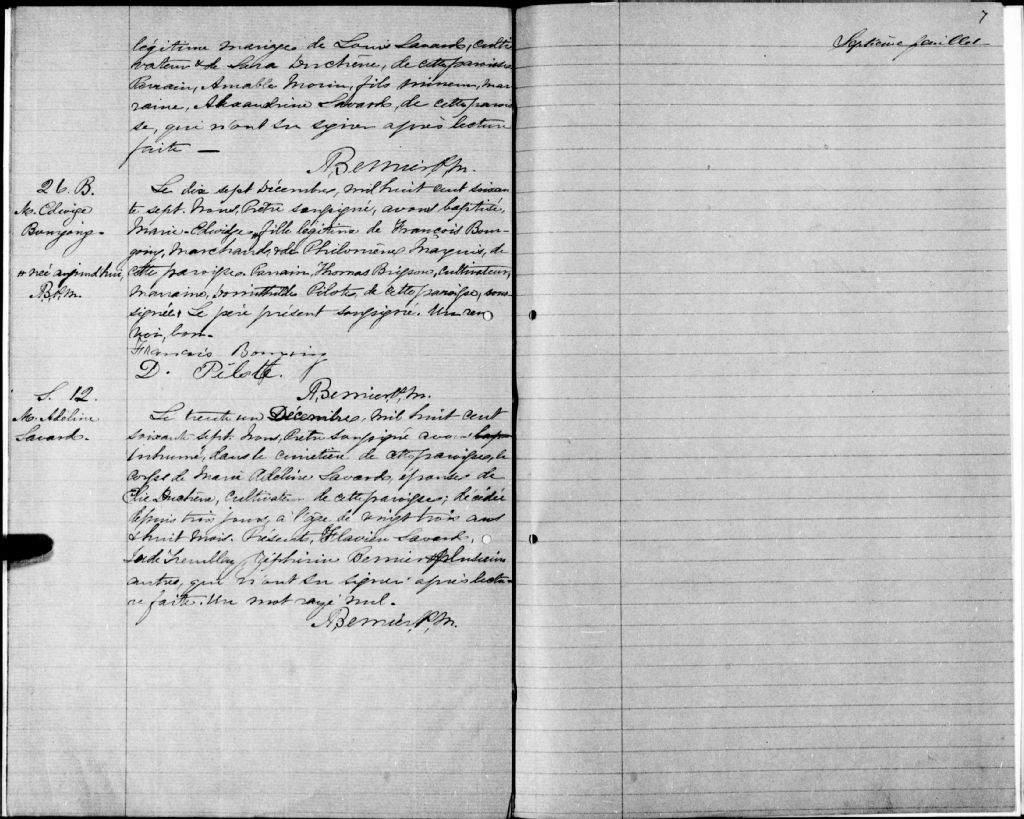 légitime mariage de Louis Savard, culti
vateur & de Sara Duchène, de cette paroisse
Parrain, Amable Morin, fils mineur, mar
raine, Alexandrine Savard, de cette parois
se, qui n'ont su signer après lecture
faite —
ABernier, P,m.
26. B.
M. Edwige
Bourgoing-
# née aujourd'hui,
AB,P,m.
Le dix sept Décembre, mil huit cent soixan
te sept. Nous, Prêtre soussigné, avons baptisé,
Marie-Edwidge, # fille légitime de François Bour-
going, Marchand, & de Philomène Marquis, de
cette paroisse. Parrain, Thomas Brisson, cultivateur,
marraine, Domithilde Pilote, de cette paroisse, sous-
signée. Le père présent soussigné. Un ren
voi, bon.
François Bourgoing
D. Pilote.
ABernier, P,m.
S. 12.
M. Adéline
Savard.
Le trente un Décembre, mil huit cent
soixante sept. Nous, Prêtre soussigné avons
inhumé, dans le cimetière de cette paroisse, le
corps de Marie Adéline Savard, épouse de
Elie Duchène, cultivateur de cette paroisse; décédée
depuis trois jours, à l'âge de vingt trois ans
& huit mois. Présent, Flavien Savard,
Tremblay, Zéphirin Bernier & plusieurs
autres, qui n'ont su signer après lectu-
re faite. Un mot rayé nul.
ABernier, P,m.
7
Septième feuillet